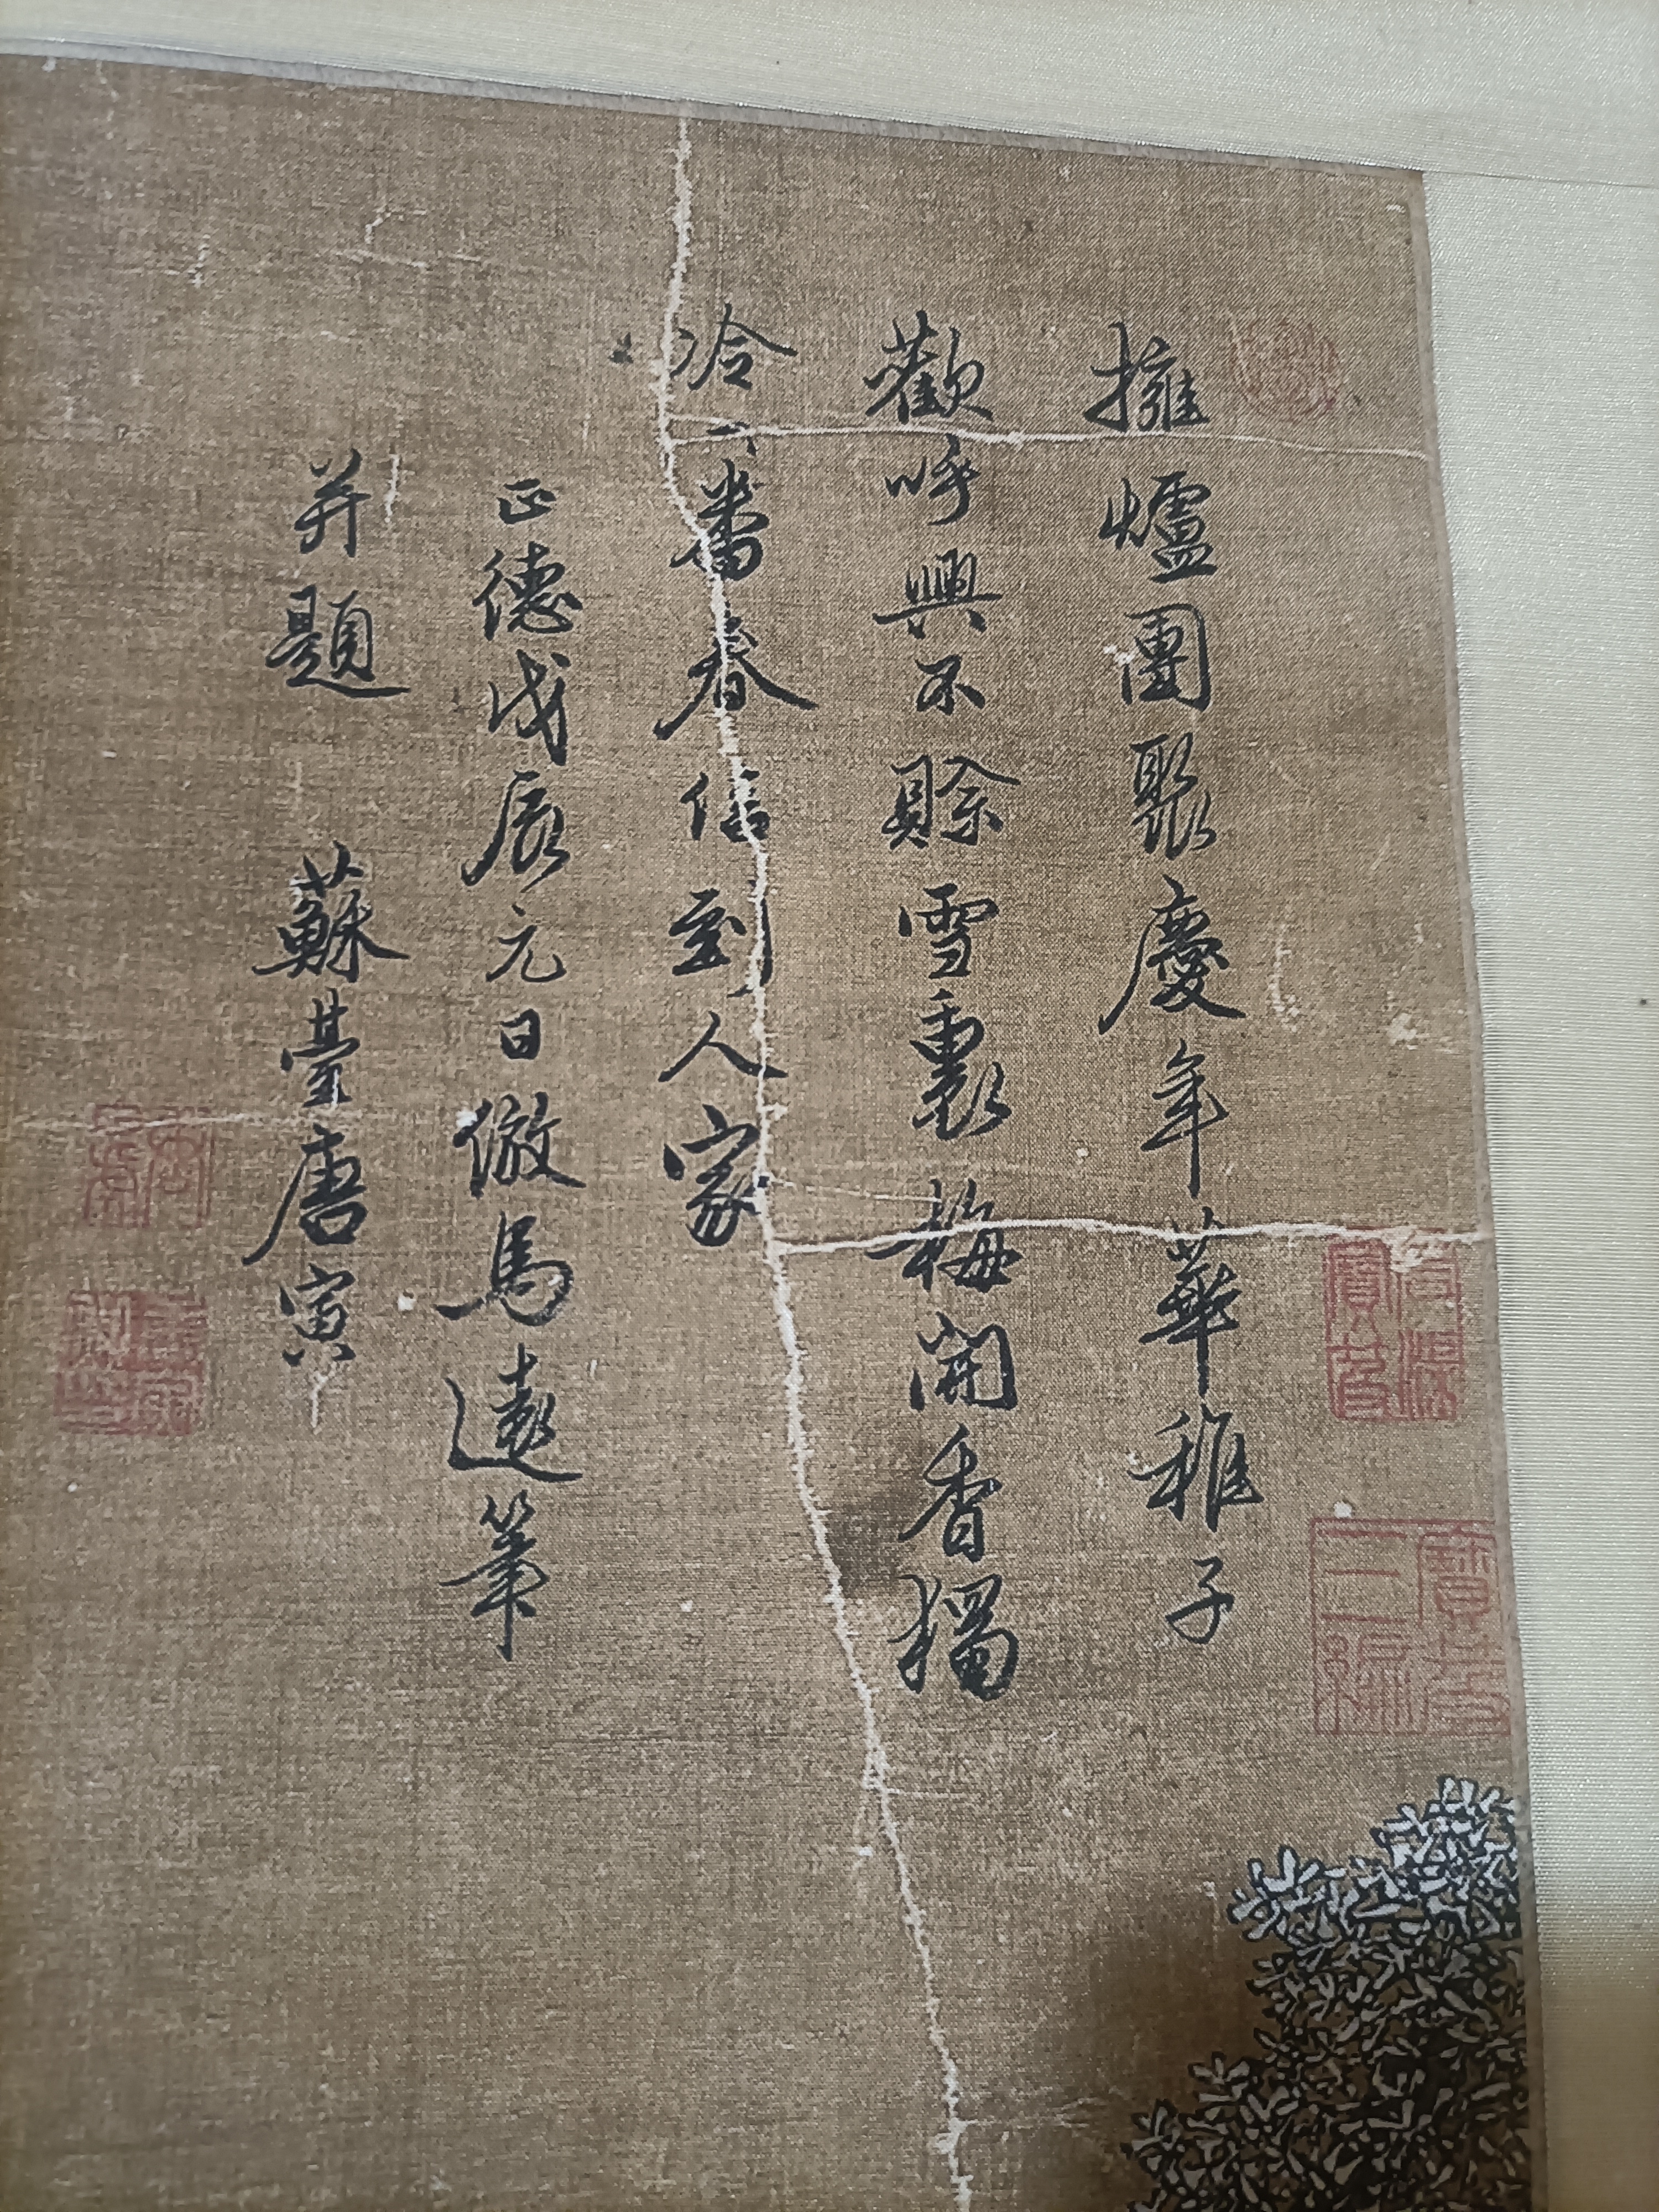 擁爐團聚慶年華稚子
歡呼興不賒雪裹梅開香獨
冷一番春信到人家
正德戊辰元日倣馬遠筆
并題 蘇臺唐寅